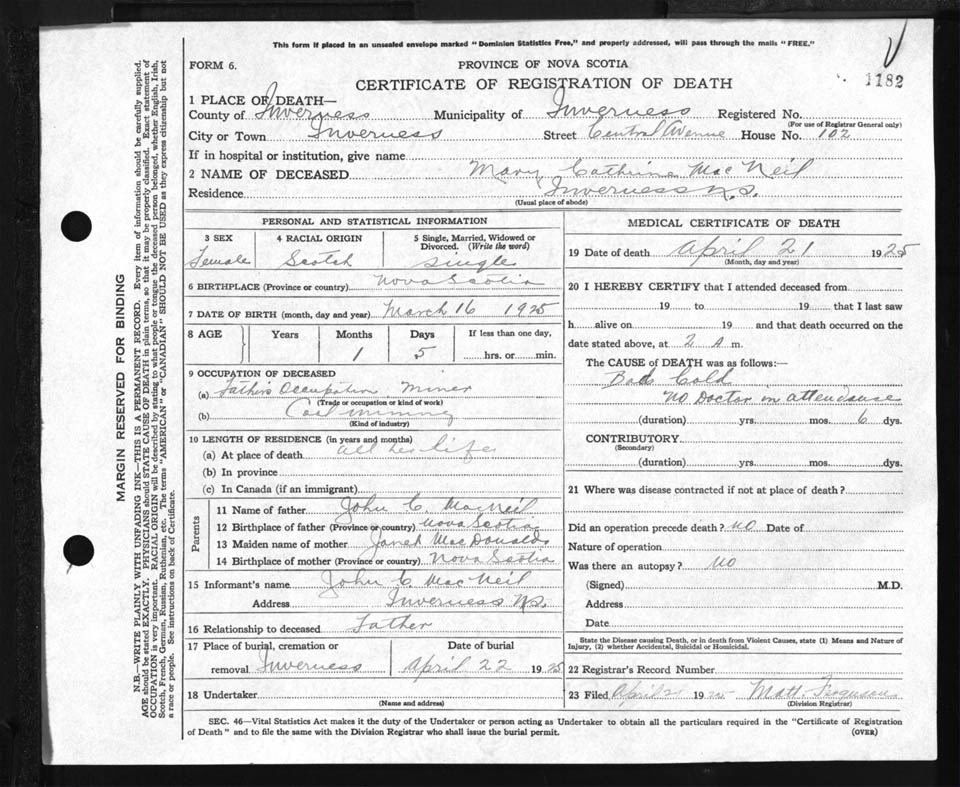 This form if placed in an unsealed envelope marked "Dominion Statistics Free," and properly addressed, will pass through the mails "FREE."
FORM 6.
PROVINCE OF NOVA SCOTIA
CERTIFICATE OF REGISTRATION OF DEATH
1182
1 PLACE OF DEATH—
County of Inverness Municipality of Inverness Registered No.
(For use of Registrar General only)
City or Town Inverness Street Central Avenue House No. 102
If in hospital or institution, give name
2 NAME OF DECEASED Mary Cathrine MacNeil
Residence Inverness N.S.
(Usual place of abode)
PERSONAL AND STATISTICAL INFORMATION
3 SEX 4 RACIAL ORIGIN 5 Single, Married, Widowed or Divorced. (Write the word)
Female Scotch Single
6 BIRTHPLACE (Province or country) Nova Scotia
7 DATE OF BIRTH (month, day and year) March 16 1925
8 AGE Years Months Days If less than one day,
1 5 hrs. or min.
9 OCCUPATION OF DECEASED
(a) Father's Occupation Miner
(Trade or occupation or kind of work)
(b) Coal mining
(Kind of industry)
10 LENGTH OF RESIDENCE (in years and months)
(a) At place of death all her life
(b) In province
(c) In Canada (if an immigrant)
Parents
11 Name of father John C. MacNeil
12 Birthplace of father (Province or country) Nova Scotia
13 Maiden name of mother Janet MacDonald
14 Birthplace of mother (Province or country) Nova Scotia
15 Informant's name John C. MacNeil
Address Inverness N.S.
16 Relationship to deceased Father
17 Place of burial, cremation or Date of burial
removal Inverness April 22 1925
18 Undertaker
(Name and address)
MEDICAL CERTIFICATE OF DEATH
19 Date of death April 21 1925
(Month, day and year)
20 I HEREBY CERTIFY that I attended deceased from
19 to 19 that I last saw
h alive on 19 and that death occurred on
date stated above, at 2 A m.
The CAUSE of DEATH was as follows:—
Bad Cold
No Doctor in attendance
(duration) yrs. mos. 6 dys.
CONTRIBUTORY
(Secondary)
(duration) yrs. mos. dys.
21 Where was disease contracted if not at place of death?
Did an operation precede death? No Date of
Nature of operation
Was there an autopsy? No
(Signed) M.D.
Address
Date
State the Disease causing Death, or in death from Violent Causes, state (1) Means and Nature of
Injury, (2) whether Accidental, Suicidal or Homicidal.
22 Registrar's Record Number
23 Filed April 19 Matt. Ferguson
(Division Registrar)
SEC. 46—Vital Statistics Act makes it the duty of the Undertaker or person acting as Undertaker to obtain all the particulars required in the "Certificate of Registration
of Death" and to file the same with the Division Registrar who shall issue the burial permit.
(OVER)
MARGIN RESERVED FOR BINDING
N.B.—WRITE PLAINLY WITH UNFADING INK—THIS IS A PERMANENT RECORD. Every item of information should be carefully supplied.
AGE should be stated EXACTLY. PHYSICIANS should STATE CAUSE OF DEATH in plain terms, so that it may be properly classified. Exact statement of
OCCUPATION is very important. RACIAL ORIGIN will be described by stating to what people or tongue the deceased person belonged, whether English, Irish,
Scotch, French, German, Russian, Ruthenian, etc. The terms "AMERICAN" or "CANADIAN" SHOULD NOT BE USED as they express citizenship but not
a race or people. See instructions on back of Certificate.